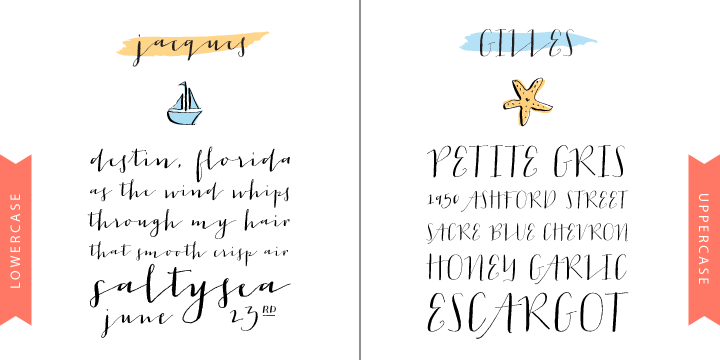 jacques
destin, florida
as the wind whips
through my hair
that smooth crisp air
saltysea
june 23RD
LOWERCASE
GILLES
PETITE GRIS
1950 ASHFORD STREET
SACRE BLUE CHEVRON
HONEY GARLIC
ESCARGOT
UPPERCASE